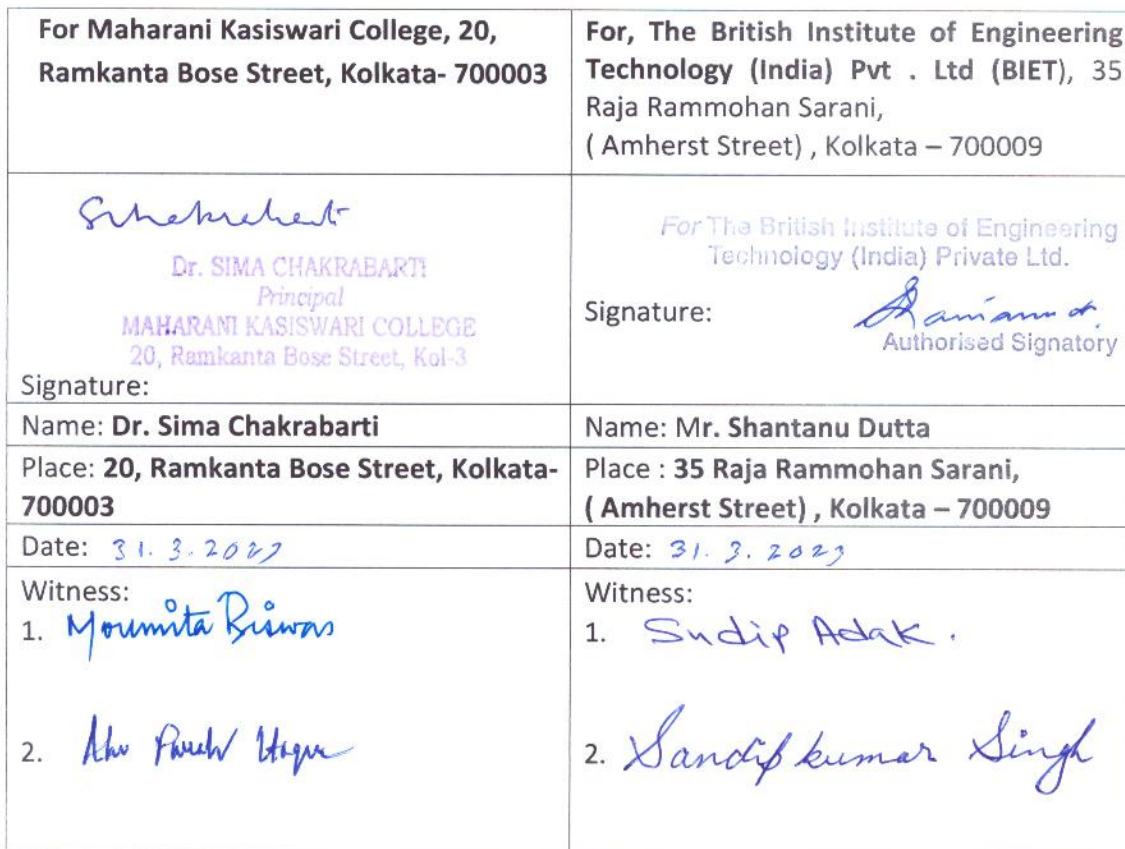 For Maharani Kasiswari College, 20,
Ramkanta Bose Street, Kolkata- 700003
For, The British Institute of Engineering
Technology (India) Pvt . Ltd (BIET), 35
Raja Rammohan Sarani,
( Amherst Street) , Kolkata – 700009
Dr. SIMA CHAKRABARTI
Principal
MAHARANI KASISWARI COLLEGE
20, Ramkanta Bose Street, Kol-3
Signature:
For The British Institute of Engineering
Technology (India) Private Ltd.
Signature:
Authorised Signatory
Name: Dr. Sima Chakrabarti
Name: Mr. Shantanu Dutta
Place: 20, Ramkanta Bose Street, Kolkata-
700003
Place : 35 Raja Rammohan Sarani,
( Amherst Street) , Kolkata – 700009
Date: 31.3.2023
Date: 31.3.2023
Witness:
1. Moumita Biswas
2.
Witness:
1. Sudip Adak.
2. Sandip kumar Singh